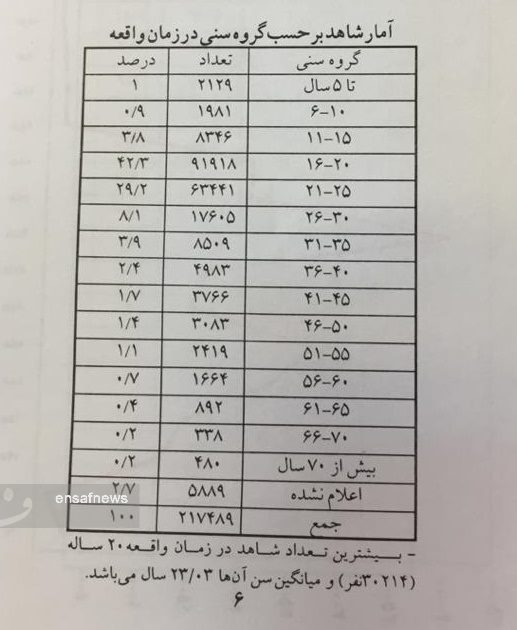 آمار شاهد برحسب گروه سنی در زمان واقعه
گروه سنی تعداد درصد
تا ۵ سال ۲۱۲۹ ۱
۶-۱۰ ۱۹۸۱ ۰/۹
۱۱-۱۵ ۸۳۴۶ ۳/۸
۱۶-۲۰ ۹۱۹۱۸ ۴۲/۳
۲۱-۲۵ ۶۳۴۴۱ ۲۹/۲
۲۶-۳۰ ۱۷۶۰۵ ۸/۱
۳۱-۳۵ ۸۵۰۹ ۳/۹
۳۶-۴۰ ۴۹۸۳ ۲/۴
۴۱-۴۵ ۳۷۶۶ ۱/۷
۴۶-۵۰ ۳۰۸۳ ۱/۴
۵۱-۵۵ ۲۴۱۹ ۱/۱
۵۶-۶۰ ۱۶۶۴ ۰/۷
۶۱-۶۵ ۸۹۲ ۰/۴
۶۶-۷۰ ۳۳۸ ۰/۲
بیش از ۷۰ سال ۴۸۰ ۰/۲
اعلام نشده ۵۸۸۹ ۲/۷
جمع ۲۱۷۴۸۹ ۱۰۰
- بیشترین تعداد شاهد در زمان واقعه ۲۰ ساله
(۳۰۲۱۴نفر) و میانگین سن آن‌ها ۲۳/۰۳ سال می‌باشد.
۶
ensafnews